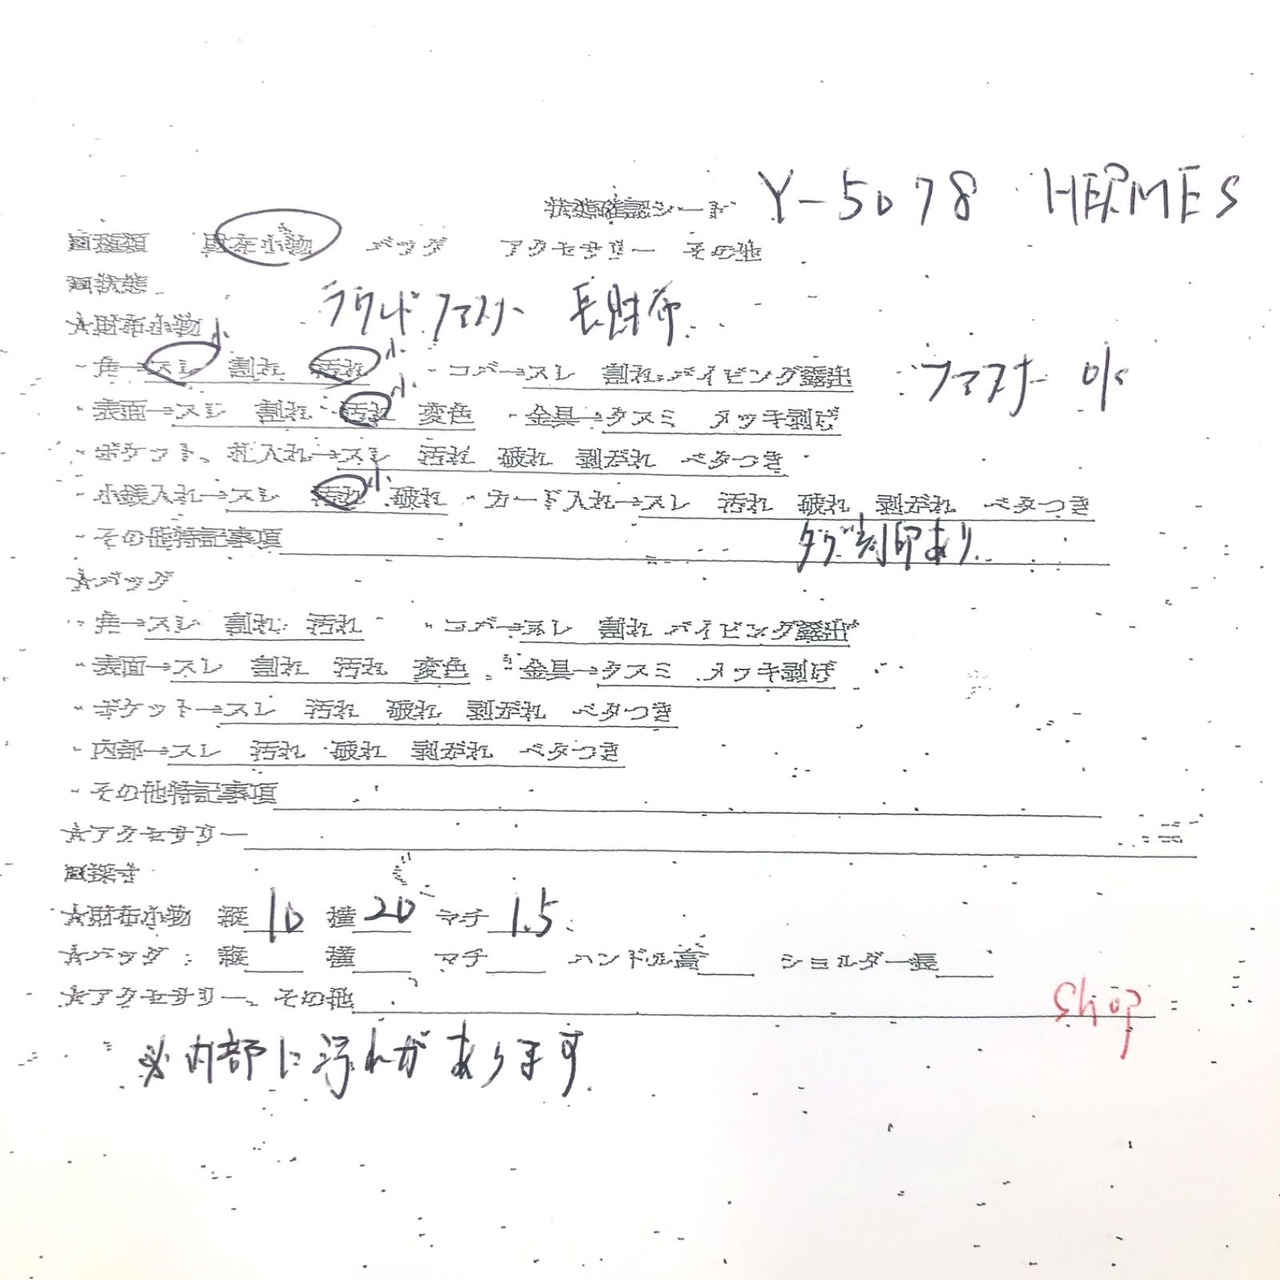 状態確認シート Y-5078 HERMES
□種類 財布小物 バッグ アクセサリー その他
□状態
ラウンドファスナー 長財布
★財布小物
・角→スレ小 割れ 汚れ小 ・コバ→スレ 割れ パイピング露出
ファスナー ok
・表面→スレ 割れ 汚れ小 変色 ・金具→クスミ メッキ剥げ
・ポケット、札入れ→スレ 汚れ 破れ 剥がれ ベタつき
・小銭入れ→スレ 汚れ小 破れ ・カード入れ→スレ 汚れ 破れ 剥がれ ベタつき
・その他特記事項 タグ刻印あり
★バッグ
・角→スレ 割れ 汚れ ・コバ→スレ 割れ パイピング露出
・表面→スレ 割れ 汚れ 変色 ・金具→クスミ メッキ剥げ
・ポケット→スレ 汚れ 破れ 剥がれ ベタつき
・内部→スレ 汚れ 破れ 剥がれ ベタつき
・その他特記事項
★アクセサリー
□採寸
★財布小物 縦 10 横 20 マチ 1.5
★バッグ: 縦 横 マチ ハンドル高 ショルダー長
★アクセサリー、その他
shop
※内部に汚れがあります